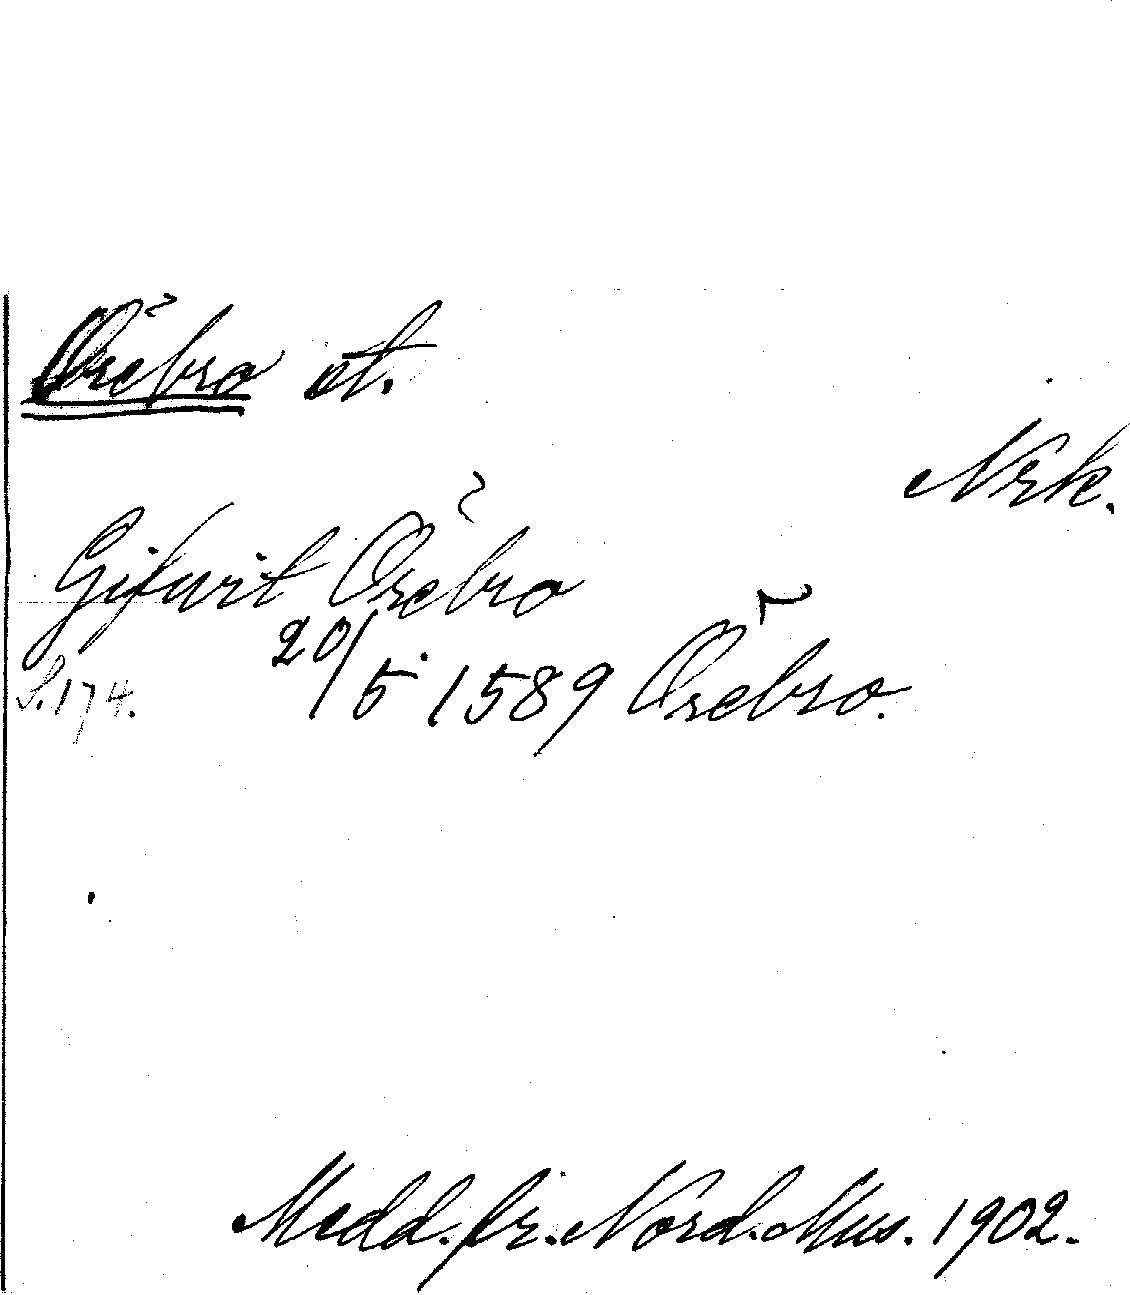 Örebro st.
Nrk.
Gifwit Örebro
20/5 1589 Örebro.
S. 174.
Medd. fr. Nord. Mus. 1902.